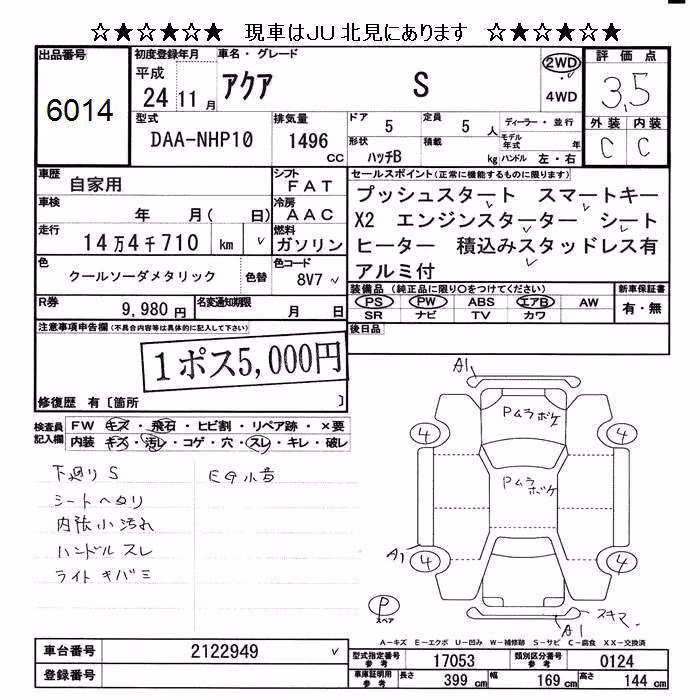 ☆★☆★☆★ 現車はJU北見にあります ☆★☆★☆★
出品番号 初度登録年月 車名・グレード 評価点
6014 平成 24 年 11 月 アクア S 2WD 4WD 3,5
型式 排気量 ドア 定員 ディーラー・並行 外装 内装
DAA-NHP10 1496 cc 5 5 人 モデル年式 年 C C
形状 積載
ハッチB kg ハンドル 左・右
車歴 シフト セールスポイント(正常に機能するものに限ります)
自家用 FAT プッシュスタート スマートキー
車検 冷房 X2 エンジンスターター シート
年 月( 日) AAC ヒーター 積込みスタッドレス有
走行 燃料 アルミ付
14万4千710 km ガソリン
色 色コード
クールソーダメタリック 色替 8V7
装備品(純正品に限り○をつけてください) 新車保証書
PS PW ABS エアB AW 有・無
SR ナビ TV カワ
R券 9,980 円 名変通知期限 月 日
後日品
注意事項申告欄(不具合内容等は具体的に記入して下さい)
1ポス5,000円
修復歴 有〔箇所 〕
検査員記入欄 FW キズ・飛石・ヒビ割・リペア跡・×要
内装 キズ・汚レ・コゲ・穴・スレ・キレ・破レ
下廻り S EG小音
シートヘタリ
内張小汚れ
ハンドルスレ
ライトキバミ
A1
Pムラボケ
4 4
Pムラボケ
A1 4 4
P スペア
スキマ
A1
A-キズ E-エクボ U-凹み W-補修跡 S-サビ C-腐食 XX-交換済
車台番号 2122949 型式指定番号 参考 17053 類別区分番号 参考 0124
登録番号 車庫証明用 参考 長さ 399 cm 幅 169 cm 高さ 144 cm